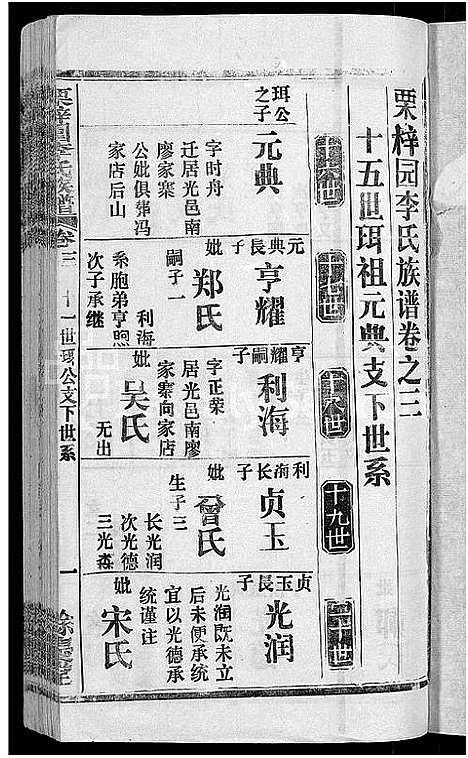 栗梓园李氏族谱卷之三
十五世珥祖元典支下世系
十六世
十八世
十九世
二十世
珥公
之子
元典
字时舟
迁居光邑南
廖家寨
公妣俱葬冯
家店后山
元典長子
亨耀
妣
郑氏
嗣子一
利海
系胞弟亨照
次子承继
亨耀嗣子
利海
字正荣
居光邑南廖
家寨向家店
妣
吴氏
无出
利海长子
贞玉
妣
曾氏
生子三
长光润
次光德
三光
贞玉長子
光润
光润既未立
后未便承统
宜以光德承
统谨注
妣
宋氏
栗梓園李氏族譜
卷三
十一世珥公支下世系
一